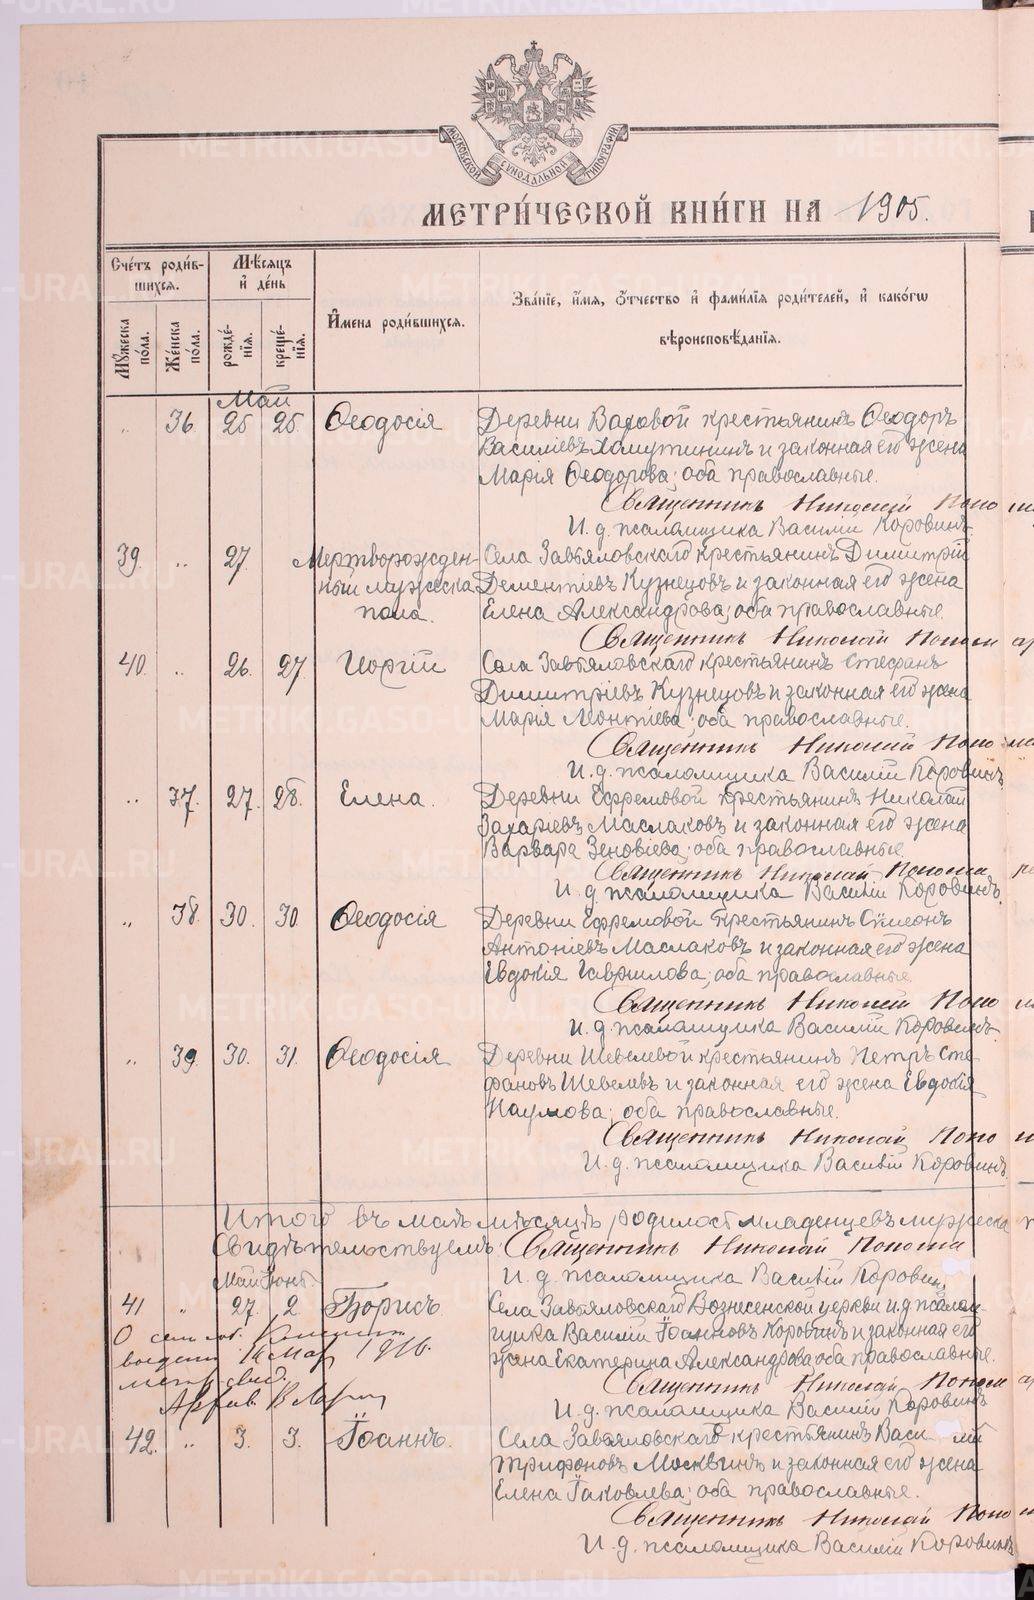 МОСКОВСКОЙ СѴНОДАЛЬНОЙ ТИПОГРАФІИ
МЕТРИ́ЧЕСКОЙ КНИ́ГИ НА 1905.
Сче́тъ роди́в-
шихся.
Мѣ́сяцъ
и҆ де́нь
И҆мена роди́вшихся.
Зва́ніе, и҆́мя, ѻ҆́тчество и҆ фами́лія роди́телей, и҆ како́гѡ
вѣроисповѣ́данія.
Мꙋ́жеска по́ла.
Же́нска по́ла.
рожде́-
нія.
креще́-
нія.
Май
" 36. 25 25 Ѳеодосія ДеревниВаховой крестьянинъ Ѳеодоръ
Василіевъ Хомутининъ и законная его жена
Марія Ѳеодорова; оба православные.
Священникъ Николай Поно
И. д. псаломщика Василій Коровинъ.
39. " 27. Мертворожден- Села Завьяловскаго крестьянинъ Димитрій
ный мужеска Дементіевъ Кузнецовъ и законная его жена
пола. Елена Александрова; оба православные.
Священникъ Николай Поном
40. " 26. 27. Георгій Села Завьяловскаго крестьянинъ Стефанъ
Димитріевъ Кузнецовъ и законная его жена
Марія Леонтіева; оба православные.
Священникъ Николай Поно
И. д. псаломщика Василій Коровинъ
" 37. 27. 28. Елена. Деревни Ефремовой крестьянинъ Николай
Захаріевъ Маслаковъ и законная его жена
Варвара Зеновіева; оба православные
Священникъ Николай Понома
И. д. псаломщика Василій Коровинъ.
" 38. 30. 30. Ѳеодосія Деревни Ефремовой крестьянинъ Сѵмеонъ
Антоніевъ Маслаковъ и законная его жена
Евдокія Гаврилова; оба православные
Священникъ Николай Поно
И. д. псаломщика Василій Коровинъ.
" 39. 30. 31. Ѳеодосія Деревни Шевелевой крестьянинъ Петръ Сте-
фановъ Шевелевъ и законная его жена Евдокія
Наумова; оба православные.
Священникъ Николай Поно
И. д. псаломщика Василій Коровинъ.
Итого въ маѣ мѣсяцѣ родилось младенцевъ мужеска
Свидѣтельствуемъ: Священникъ Николай Понома
И. д. псаломщика Василій Коровин
Май Іюнь.
41 " 27. 2. Борисъ Села Завьяловскаго Вознесенской церкви и. д. псалом-
щика Василій Іоанновъ Коровинъ и законная его
жена Екатерина Александрова оба православные.
Священникъ Николай Поном
И. д. псаломщика Василій Коровинъ
О сем
мар 1916.
42. " 3. 3. Іоаннъ. Села Завьяловскаго крестьянинъ Василій
Трифоновъ Москвинъ и законная его жена
Елена Іаковлева; оба православные.
Священникъ Николай Поно
И. д. псаломщика Василій Коровинъ
METRIKI.GASO-URAL.RU